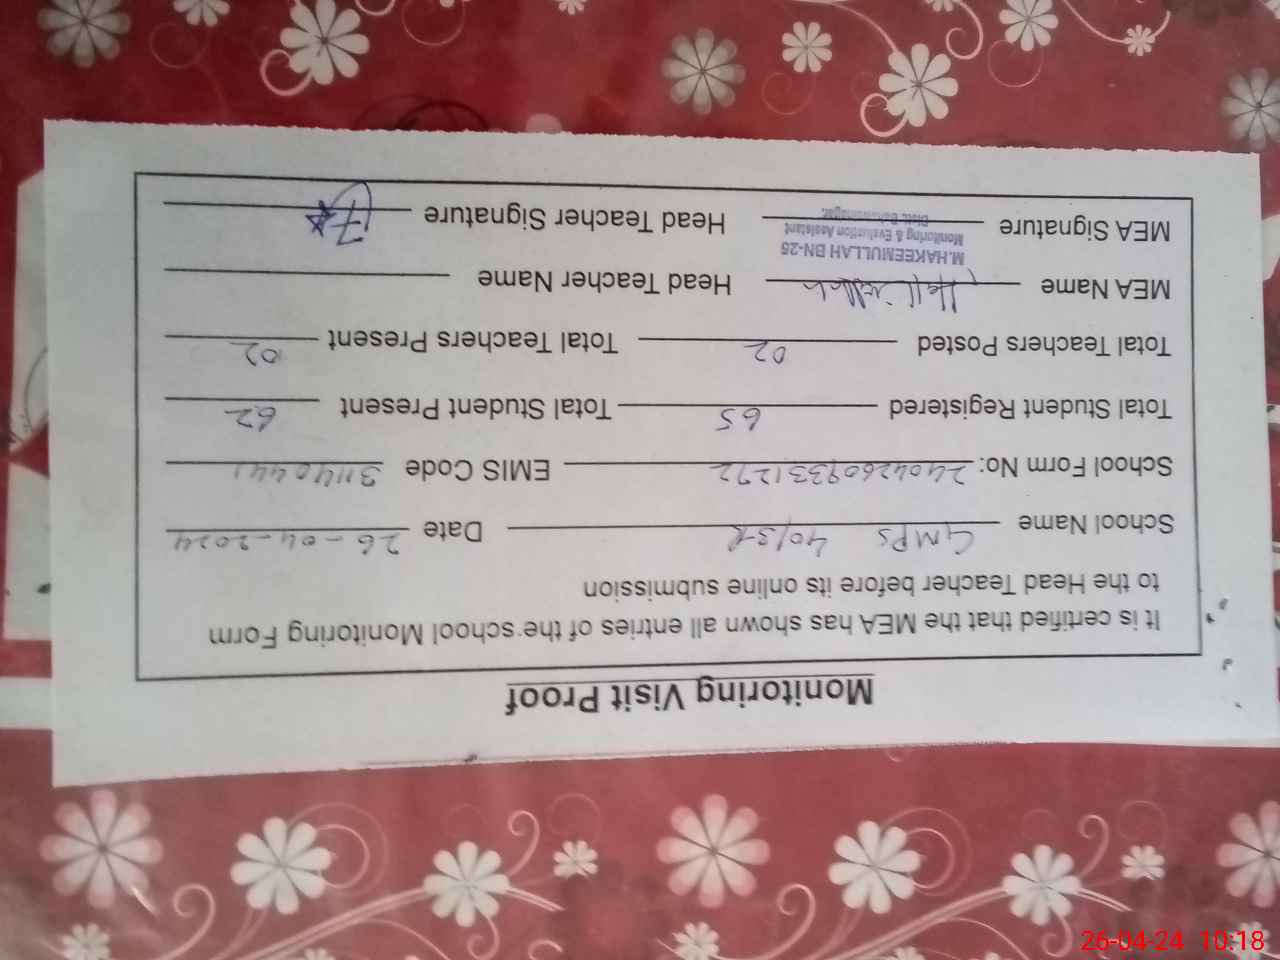 Monitoring Visit Proof
It is certified that the MEA has shown all entries of the school Monitoring Form
to the Head Teacher before its online submission
School Name GMPS 40/3-R Date 26-04-2024
School Form No: 24042609331272 EMIS Code 31140441
Total Student Registered 65 Total Student Present 62
Total Teachers Posted 02 Total Teachers Present 02
MEA Name Head Teacher Name
M.HAKEEMULLAH BN-25
Monitoring & Evaluation Assistant
Distt. Bahawalnagar.
MEA Signature Head Teacher Signature
26-04-24 10:18